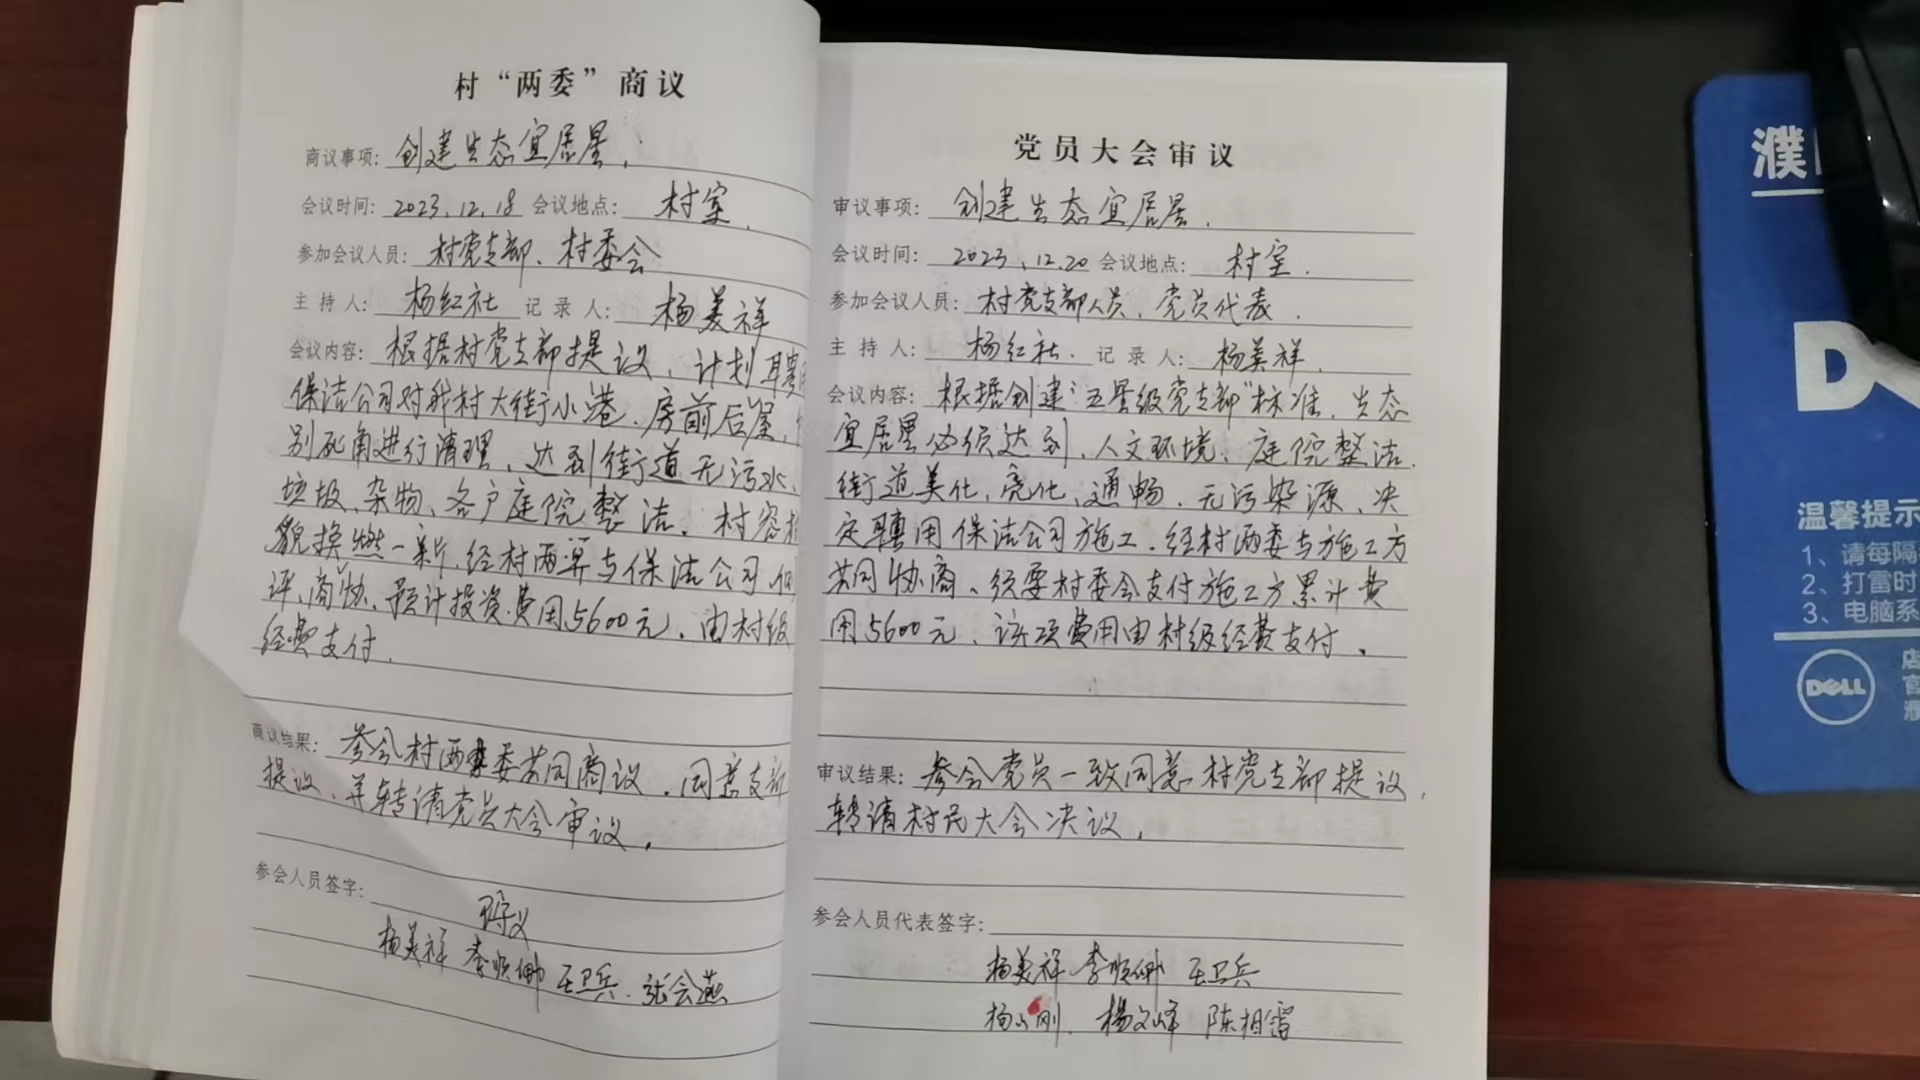 村“两委”商议
商议事项：创建生态宜居星.
会议时间：2023.12.18 会议地点：村室.
参加会议人员：村党支部、村委会
主持人：杨红社 记录人：杨美祥
会议内容：根据村党支部提议，计划聘
保洁公司对我村大街小港、房前后屋，
别死角进行清理，达到街道无污水、
垃圾、杂物、各户庭院整洁。村容
貌换燃一新，经村两委与保洁公司
评、商协，预计投资费用5600元，由村级
经费支付.
商议结果：参会村两委共同商议，同意支部
提议，并转请党员大会审议。
参会人员签字：
杨美祥 李顺 王卫兵. 张会燕
党员大会审议
审议事项：创建生态宜居星.
会议时间：2023.12.20 会议地点：村室.
参加会议人员：村党支部人员、党员代表.
主持人：杨红社. 记录人：杨美祥.
会议内容：根据创建“五星级党支部”标准，生态
宜居星必须达到，人文环境、庭院整洁.
街道美化，亮化、通畅，无污染源，决
定聘用保洁公司施工，经村两委与施工方
共同协商，须要村委会支付施工方累计费
用5600元，该项费用由村级经费支付。
审议结果：参会党员一致同意村党支部提议，
转请村民大会决议，
参会人员代表签字：
杨美祥 李顺 王卫兵
杨刚. 楊文峰 陈相雷
濮
D
温馨提示
1、请每隔
2、打雷时
3、电脑系
DELL
店
官
濮